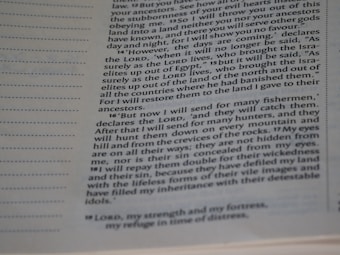 law. 13 But you have all
your ancestors. See how all of
the stubbornness of your evil hearts instead of
obeying me. 13 So I will throw you out of this
land into a land neither you nor your ancestors
have known, and there you will serve other gods
day and night, for I will show you no favour.'
14 'However, the days are coming,' declares
the LORD, 'when it will no longer be said, "As
surely as the LORD lives, who brought the Isra-
elites up out of Egypt," 15 but it will be said, "As
surely as the LORD lives, who brought the Isra-
elites up out of the land of the north and out of
all the countries where he had banished them."
For I will restore them to the land I gave to their
ancestors.
16 'But now I will send for many fishermen,'
declares the LORD, 'and they will catch them.
After that I will send for many hunters, and they
will hunt them down on every mountain and
hill and from the crevices of the rocks. 17 My eyes
are on all their ways; they are not hidden from
me, nor is their sin concealed from my eyes.
18 I will repay them double for their wickedness
and their sin, because they have defiled my land
with the lifeless forms of their vile images and
have filled my inheritance with their detestable
idols.'
19 LORD, my strength and my fortress,
my refuge in time of distress,